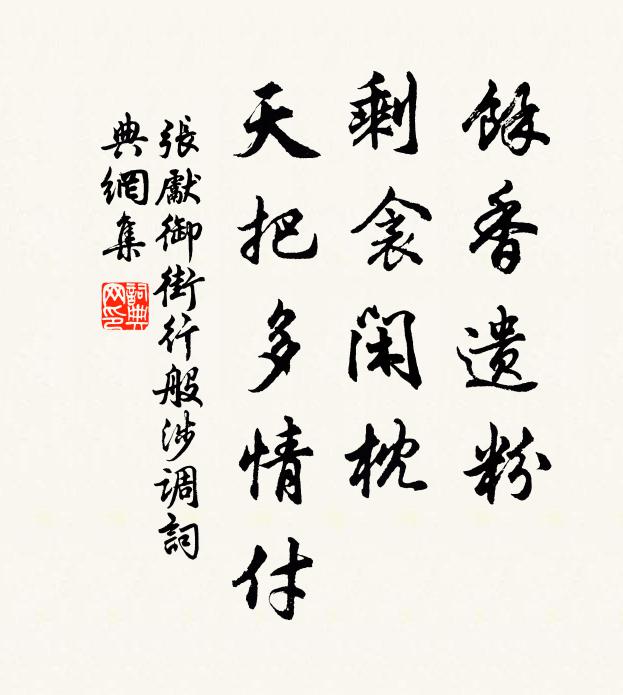 餘香遺粉
剩衾閑枕
天把多情付
張獻御街行般涉調詞
典網集
詞典網印